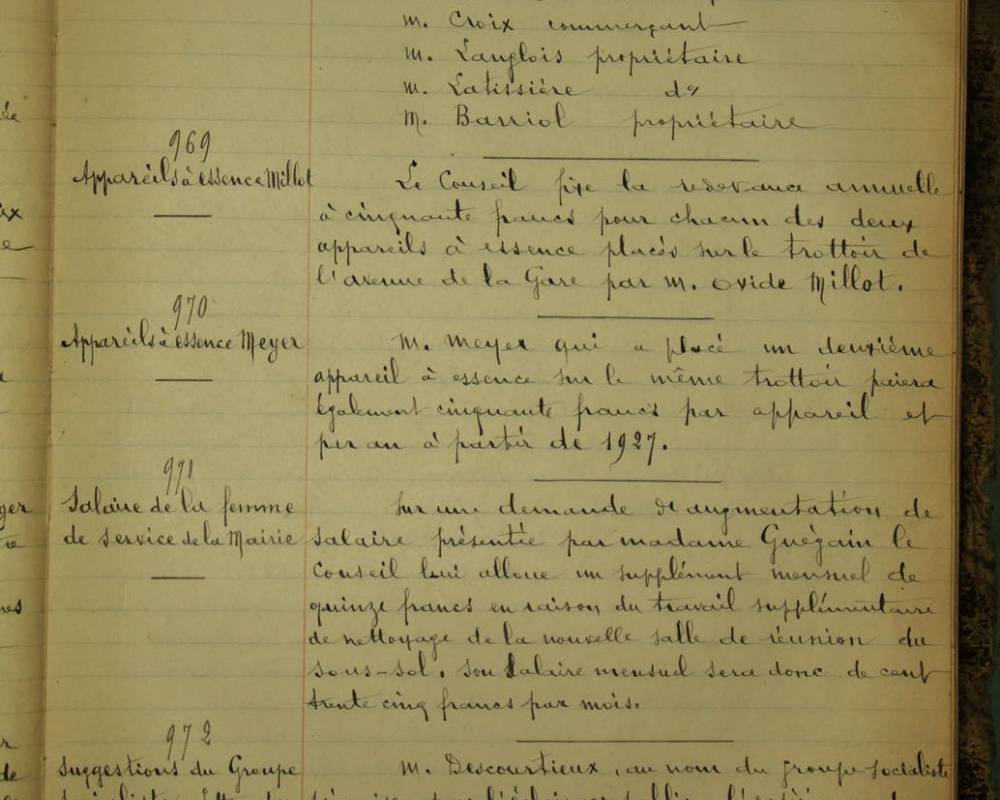 M. Croix commerçant
M. Langlois propriétaire
M. Latissière do
M. Barriol propriétaire
969
Appareils à essence Millot
Le Conseil fixe la redevance annuelle
à cinquante francs pour chacun des deux
appareils à essence placés sur le trottoir de
l'avenue de la Gare par M. Ovide Millot.
970
Appareils à essence Meyer
M. Meyer qui a placé un deuxième
appareil à essence sur le même trottoir paiera
également cinquante francs par appareil et
par an à partir de 1927.
971
Salaire de la femme
de service de la Mairie
Sur une demande d'augmentation de
salaire présentée par madame Guégain le
Conseil lui alloue un supplément mensuel de
quinze francs en raison du travail supplémentaire
de nettoyage de la nouvelle salle de réunion du
sous-sol. Son salaire mensuel sera donc de cent
trente cinq francs par mois.
972
Suggestions du Groupe
M. Descourtieux, au nom du groupe socialiste